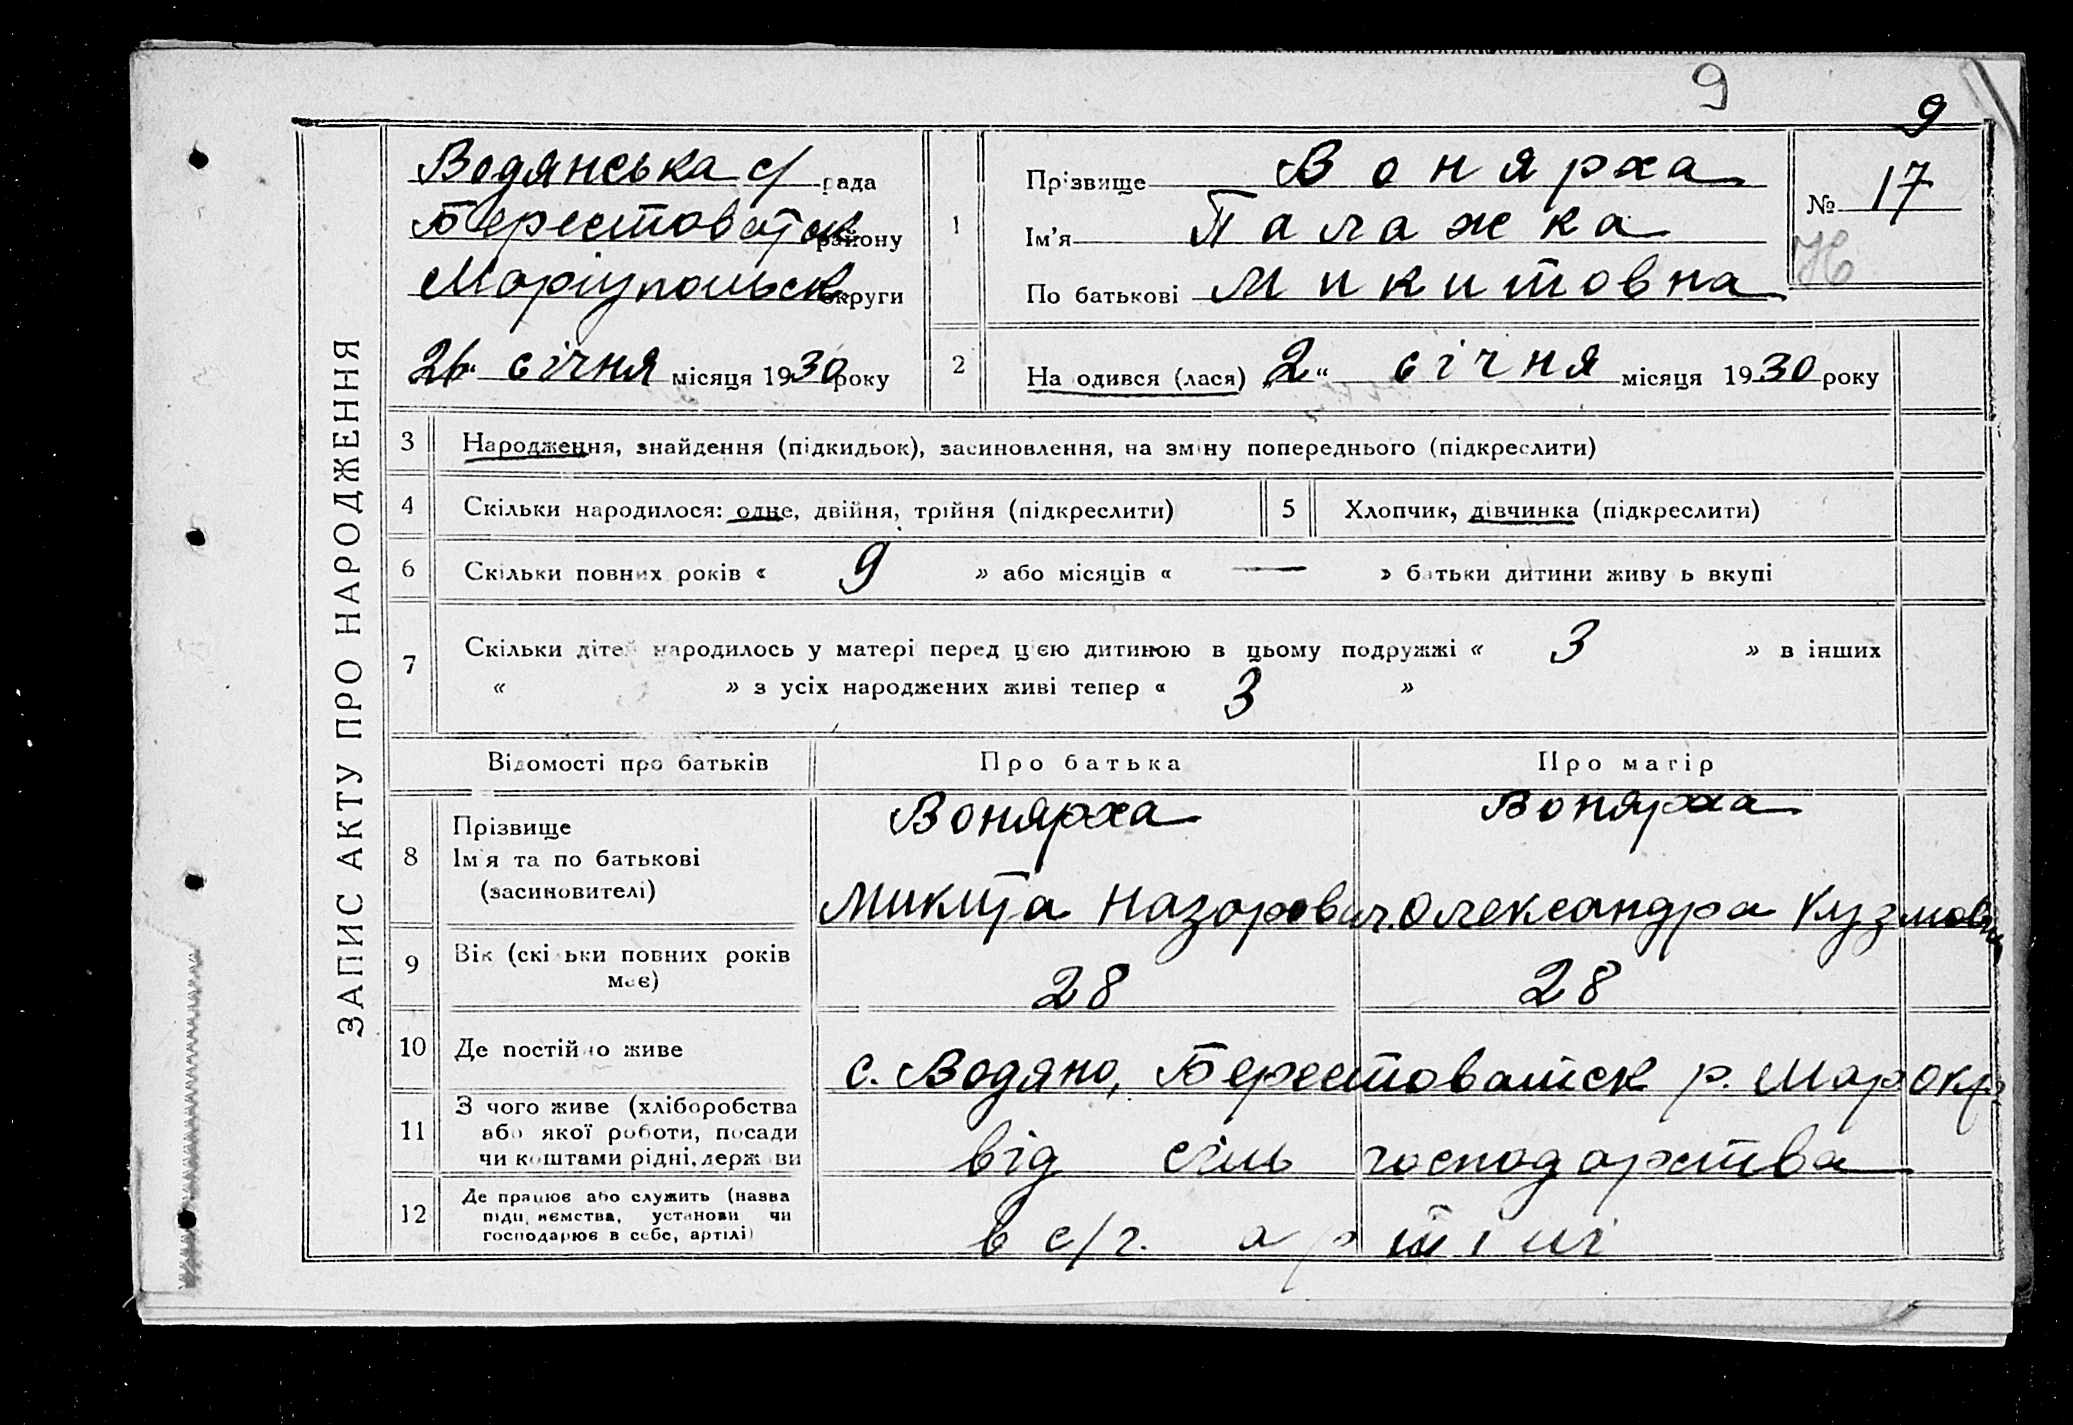 9
9
ЗАПИС АКТУ ПРО НАРОДЖЕННЯ
Водянська с/ рада
Берестоватськ району
Маріупольськ округи
26 січня місяця 1930 року
1
Прізвище Вонярха
Ім'я Палажка
По батькові Микитовна
№ 17
2
На одився (лася) „2“ січня місяця 1930 року
3 Народження, знайдення (підкидьок), засиновлення, на зміну попереднього (підкреслити)
4 Скільки народилося: одне, двійня, трійня (підкреслити) 5 Хлопчик, дівчинка (підкреслити)
6 Скільки повних років « 9 » або місяців « — » батьки дитини живу ь вкупі
7 Скільки дітей народилось у матері перед цією дитиною в цьому подружжі « 3 » в інших
« » з усіх народжених живі тепер « 3 »
Відомості про батьків Про батька Про матір
8 Прізвище Вонярха Вонярха
Ім'я та по батькові
(засиновителі) Микита Назарович. Олександра Кузмовна
9 Вік (скільки повних років
має) 28 28
10 Де постійно живе с. Водяно, Берестоватськ р. Мар окр.
11 З чого живе (хліборобства
або якої роботи, посади
чи коштами рідні, держави від сіль господарства
12 Де працює або служить (назва
підприємства, установи чи
господарює в себе, артілі) в с/г. артілі